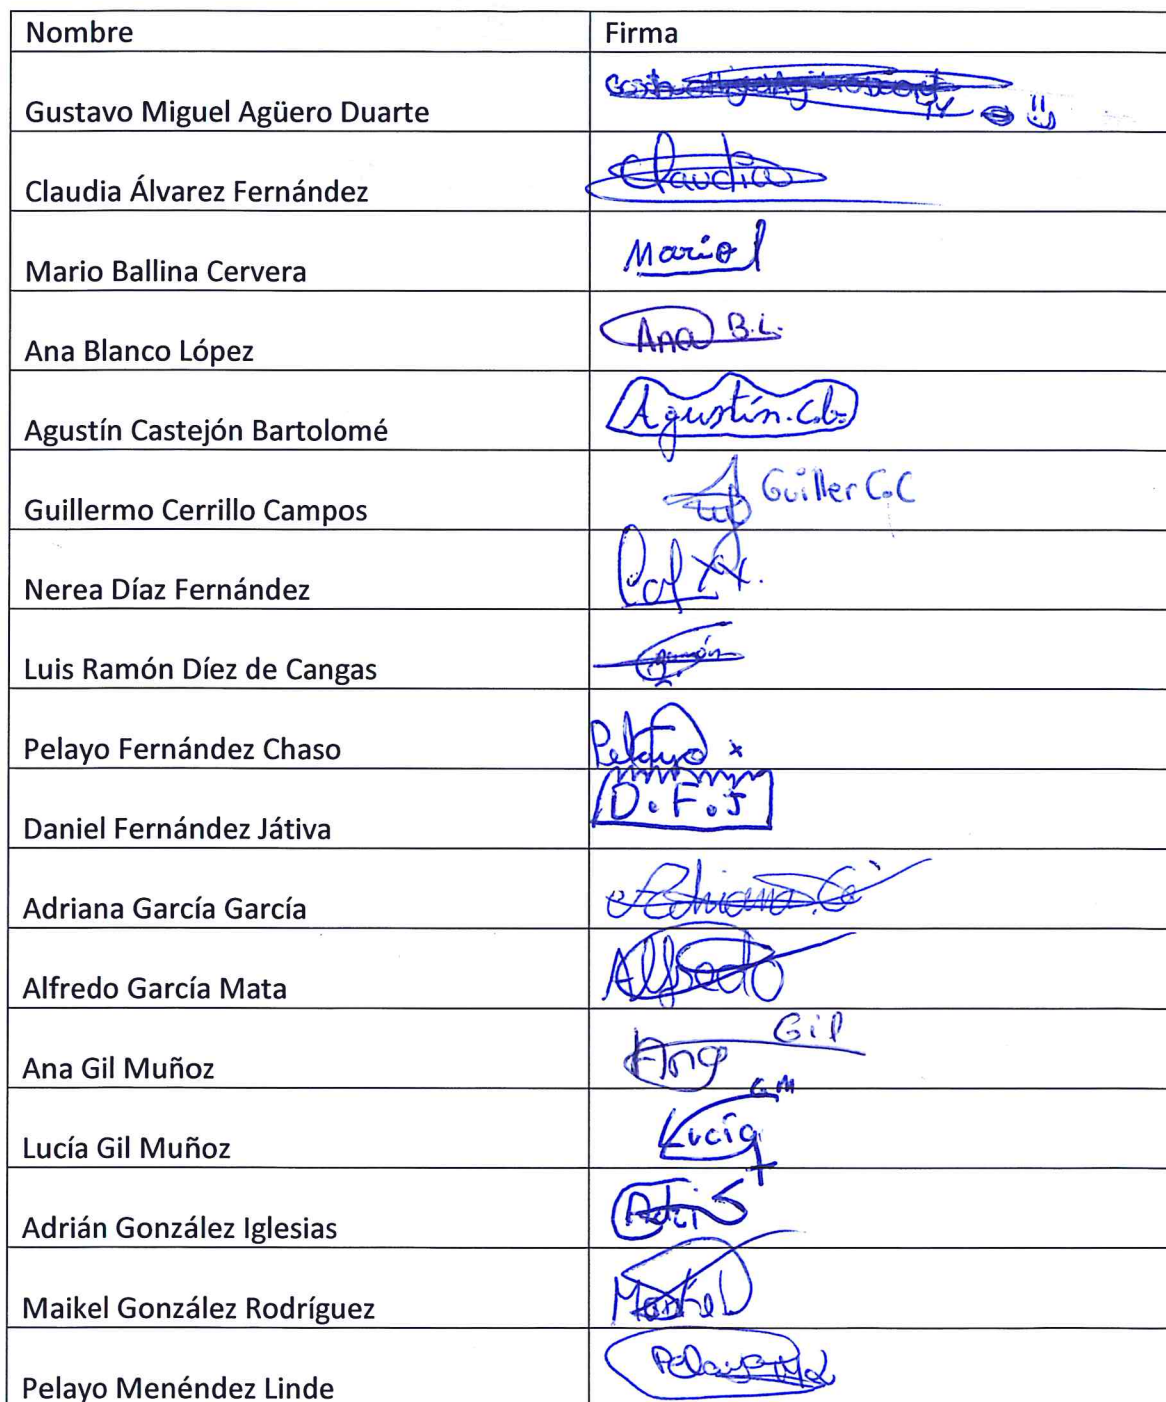 Nombre Firma
Gustavo Miguel Agüero Duarte
Claudia Álvarez Fernández Claudia
Mario Ballina Cervera Mario
Ana Blanco López Ana B.L.
Agustín Castejón Bartolomé Agustín.C.b.
Guillermo Cerrillo Campos Guiller C.C
Nerea Díaz Fernández
Luis Ramón Díez de Cangas
Pelayo Fernández Chaso Pelayo x
Daniel Fernández Játiva D.F.J
Adriana García García Adriana.G
Alfredo García Mata Alfredo
Ana Gil Muñoz Ana Gil
Lucía Gil Muñoz Lucía G.M
Adrián González Iglesias Adri
Maikel González Rodríguez Maikel
Pelayo Menéndez Linde Pelayo ML